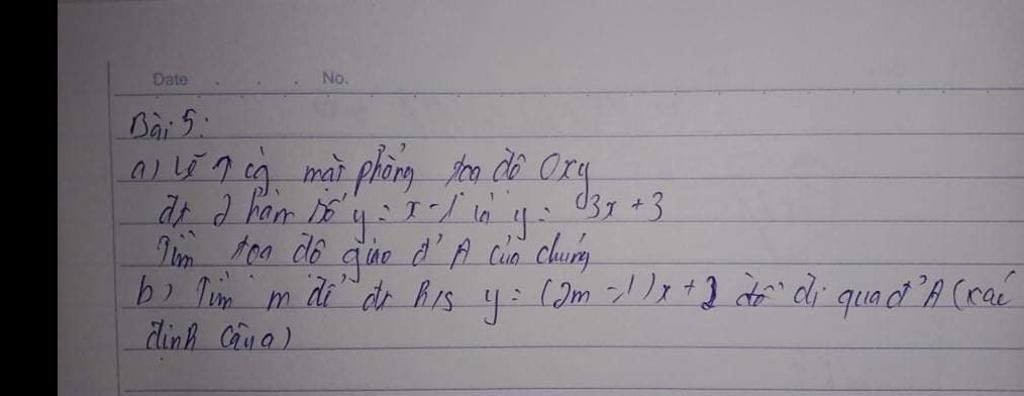 Date . . . No.
Bài 5:
a) Vẽ ↑ cg mặt phẳng toạ độ Oxy
đt 2 hàm số y = x - 1 và y = 3x + 3
Tìm toạ độ giao đ' A của chúng
b) Tìm m để đt h/s y = (2m - 1)x + đi qua đ' A (xác
định câu a)